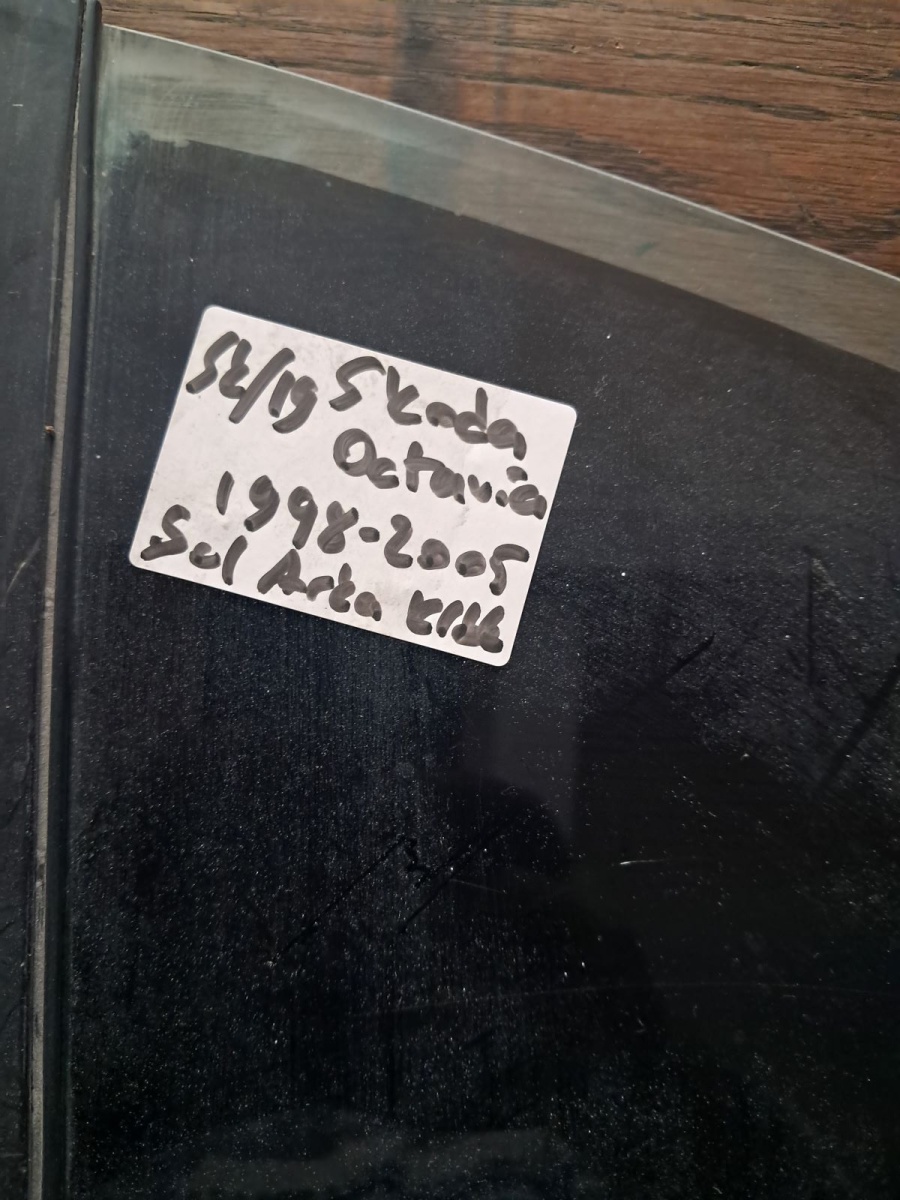 Sk/19 Skoda
Octavia
1998-2005
Sol Arka